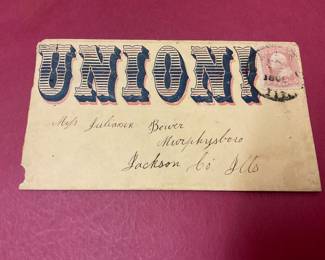 UNION!
Miss Julianer Bower
Murphysboro
Jackson Co Ills